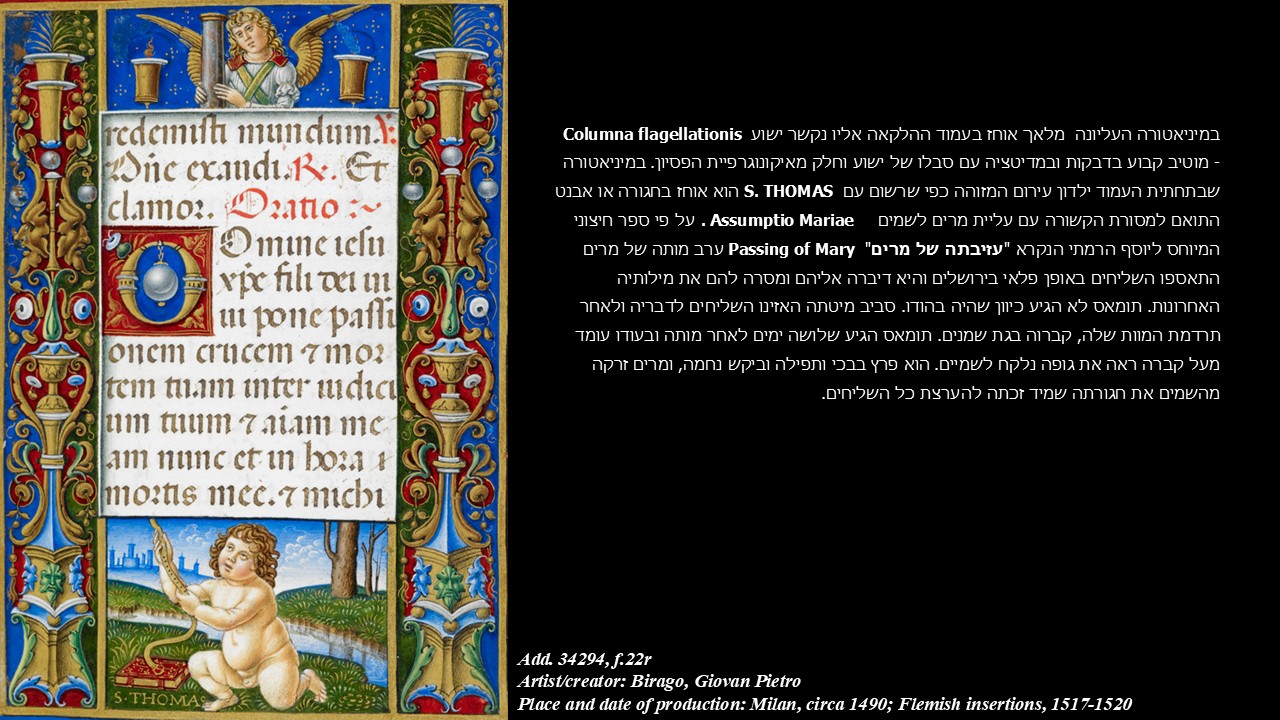 redemisti mundum. V:
Dñe exaudi. R. Et
clamor. Oratio
Omine iesu
xp̄e fili dei ui
ui pone passi
onem crucem ⁊ mor
tem tuam inter iudici
um tuum ⁊ aīam me
am nunc et in hora
mortis meē. ⁊ michi
S·THOMA
במיניאטורה העליונה מלאך אוחז בעמוד ההלקאה אליו נקשר ישוע Columna flagellationis
- מוטיב קבוע בדבקות ובמדיטציה עם סבלו של ישוע וחלק מאיקונוגרפיית הפסיון. במיניאטורה
שבתחתית העמוד ילדון עירום המזוהה כפי שרשום עם S. THOMAS הוא אוחז בחגורה או אבנט
התואם למסורת הקשורה עם עליית מרים לשמים Assumptio Mariae . על פי ספר חיצוני
המיוחס ליוסף הרמתי הנקרא "עזיבתה של מרים" Passing of Mary ערב מותה של מרים
התאספו השליחים באופן פלאי בירושלים והיא דיברה אליהם ומסרה להם את מילותיה
האחרונות. תומאס לא הגיע כיוון שהיה בהודו. סביב מיטתה האזינו השליחים לדבריה ולאחר
תרדמת המוות שלה, קברוה בגת שמנים. תומאס הגיע שלושה ימים לאחר מותה ובעודו עומד
מעל קברה ראה את גופה נלקח לשמיים. הוא פרץ בבכי ותפילה וביקש נחמה, ומרים זרקה
מהשמים את חגורתה שמיד זכתה להערצת כל השליחים.
Add. 34294, f.22r
Artist/creator: Birago, Giovan Pietro
Place and date of production: Milan, circa 1490; Flemish insertions, 1517-1520